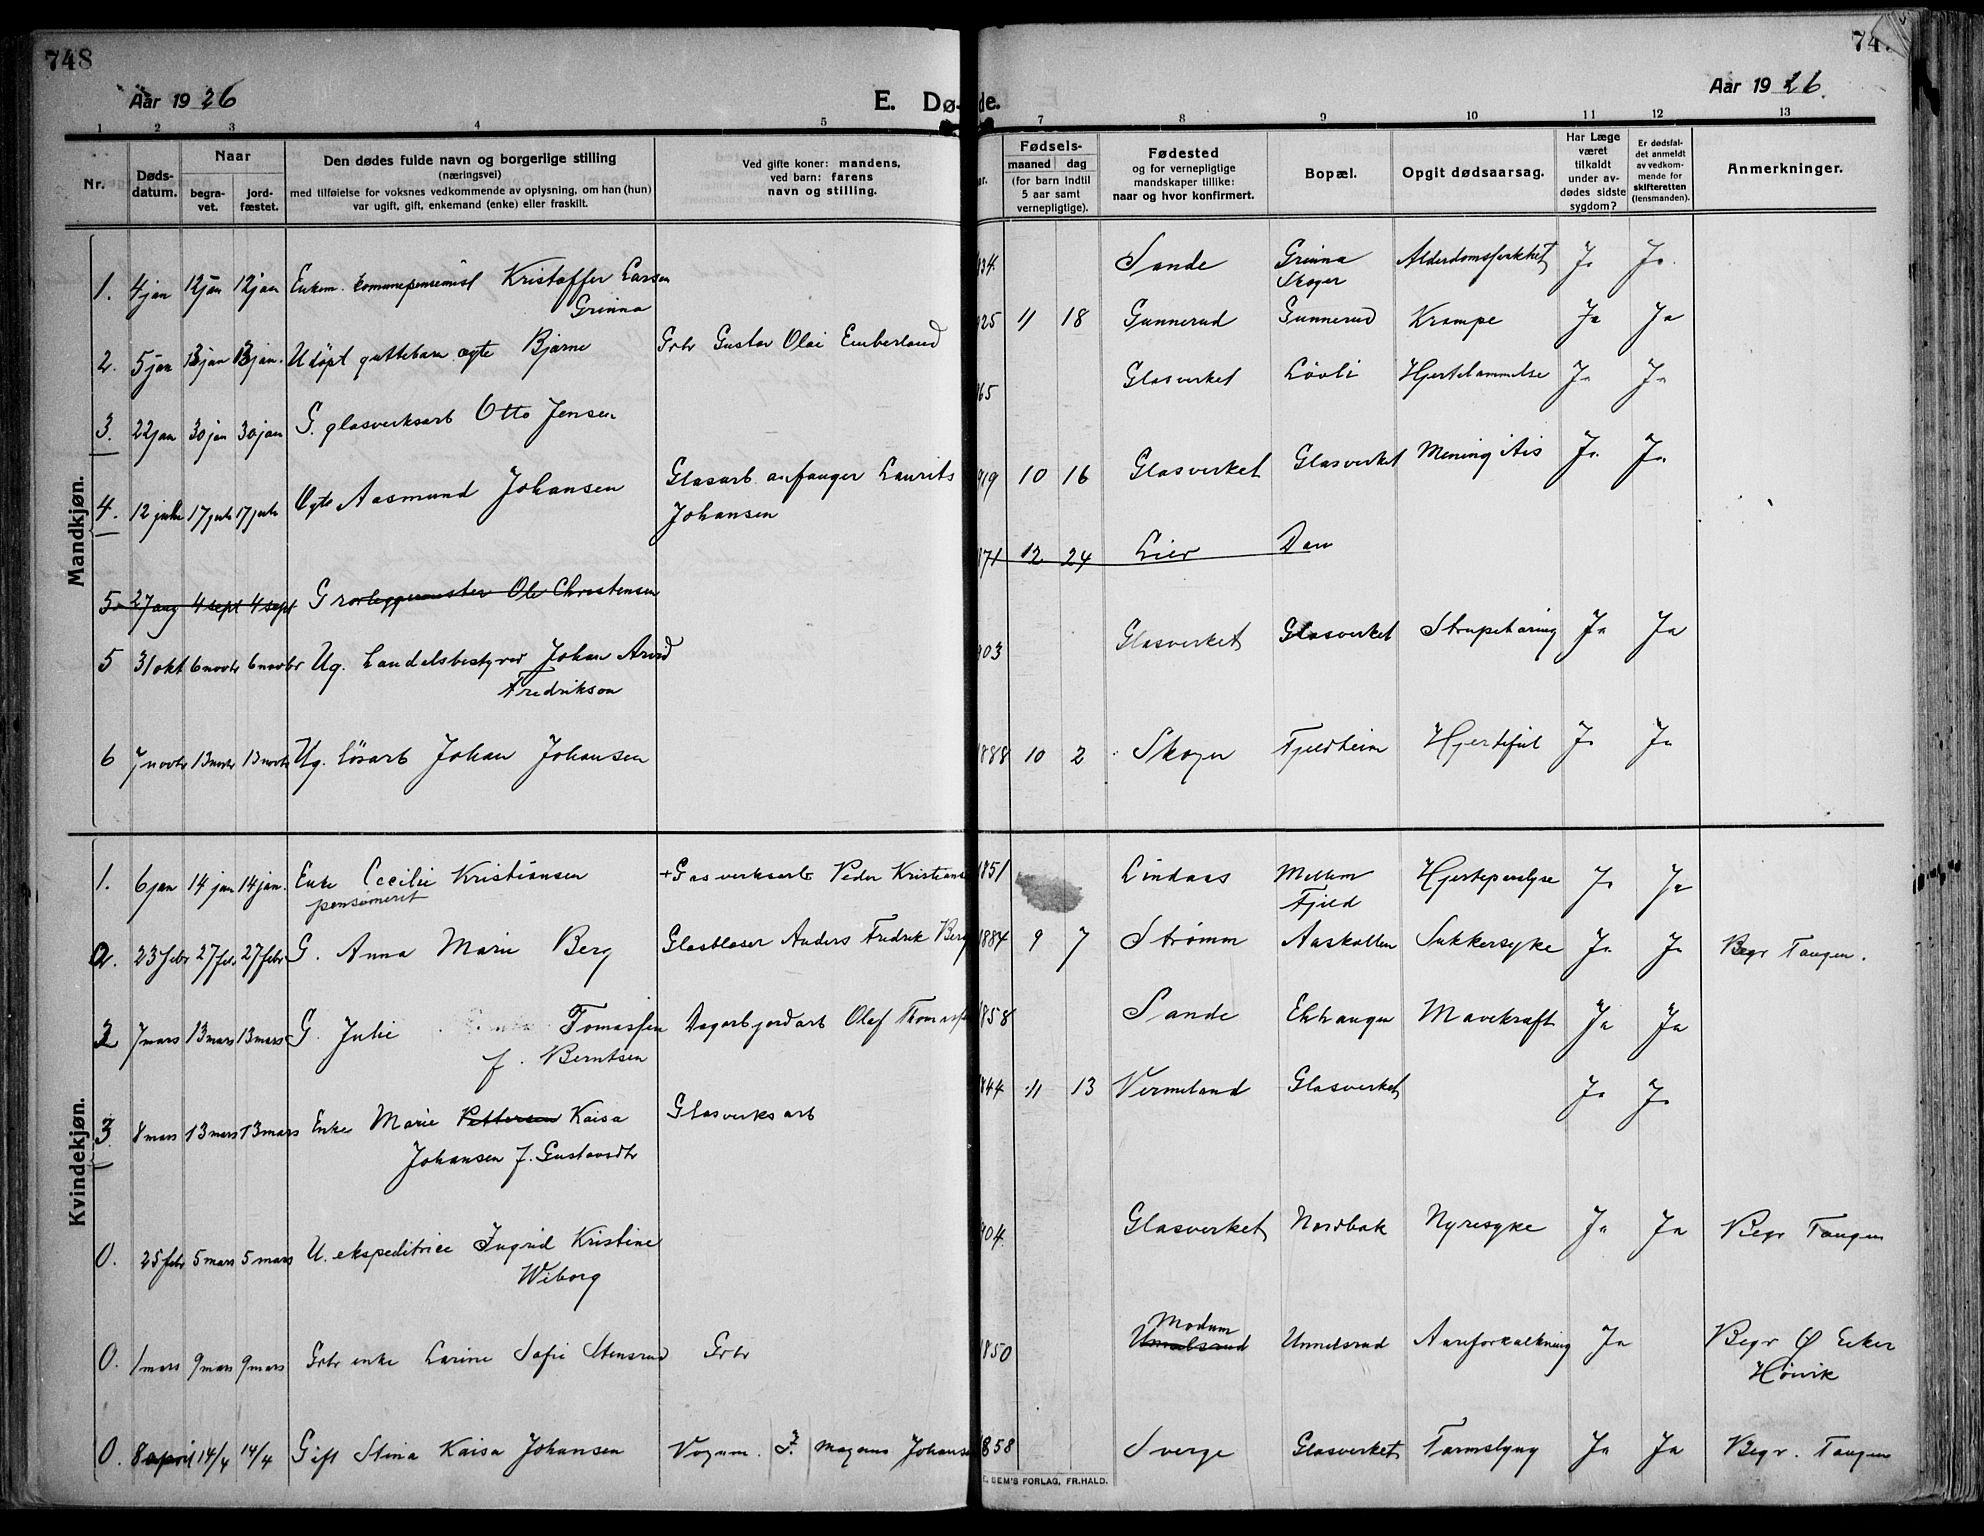 748
Aar 1926
E. Dø-
1 2 3 4 5
Nr.
Døds-
datum.
Naar
begra-
vet.
jord-
fæstet.
Den dødes fulde navn og borgerlige stilling
(næringsvei)
med tilføielse for voksnes vedkommende av oplysning, om han (hun)
var ugift, gift, enkemand (enke) eller fraskilt.
Ved gifte koner: mandens,
ved barn: farens
navn og stilling.
Mandkjøn.
1. 4 jan 12 jan 12 jan Enkem. kommunepensionist Kristoffer Larsen
Grinna
2. 5 jan 13 jan 13 jan. Udøpt guttebarn ægte Bjarne Grbr Gustav Olai Emberland
3. 22 jan 30 jan 30 jan G. glasverksarb Otto Jensen
4. 12 juli 17 juli 17 juli Ægte Aasmund Johansen Glasarb. anfanger Laurits
Johansen
5. 27 aug 4 sept 4 sept G rørleggermester Ole Christensen
5 31 okt 6 novbr 6 novbr Ug. handelsbestyrer Johan Arvid
Fredrikson
6 7 novbr 13 novbr 13 novbr Ug. løsarb Johan Johansen
Kvindekjøn.
1. 6 jan 14 jan 14 jan. Enke Cecilie Kristiansen + Glasverksarb Peder Kristians
pensioneret
2. 23 febr 27 feb. 27 febr G. Anna Marie Berg Glasblaser Anders Fredrik Berg
7 mars 13 mars 13 mars G. Julie Tomassen Dagarb jordarb Olaf Thomassen
f. Berntsen
3. 8 mars 13 mars 13 mars Enke Marie Pettersen Kaisa Glasverksarb
Johansen f. Gustavsdtr
0. 25 febr 5 mars 5 mars U. ekspeditrice Ingrid Kristine
Wiborg
0. 1 mars 9 mars 9 mars Grbr enke Larine Sofie Stensrud Grbr
0. 8 april 14/4 14/4 Gift Stina Kaisa Johansen Vognm. Magnus Johanse
74
Aar 1926.
de.
7 8 9 10 11 12 13
ar.
Fødsels-
maaned dag
(for barn indtil
5 aar samt
vernepligtige).
Fødested
og for vernepligtige
mandskaper tillike:
naar og hvor konfirmert.
Bopæl.
Opgit dødsaarsag.
Har Læge
været
tilkaldt
under av-
dødes sidste
sygdom?
Er dødsfal-
det anmeldt
av vedkom-
mende for
skifteretten
(lensmanden).
Anmerkninger.
834. Sande Grinna Alderdomssvakhet Ja Ja.
Skoger
925 11 18 Gunnerud Gunnerud Krampe Ja Ja
865 Glasverket Løvli Hjertelammelse Ja Ja
919 10 16 Glasverket Glasverket Meningitis Ja Ja
871 12 24 Lier
903 Glasverket Glasverket Strupetæring Ja Ja
1888 10 2 Skoger Fjeldheim Hjertefeil Ja Ja
1851 Lindaas Mellem Hjerteparalyse Ja Ja
Fjeld
1884 9 7 Strømm Aaskollen Sukkersyke Ja Ja Begr Tangen.
1858 Sande Ekhaugen Mavekræft Ja Ja
1844 11 13 Vermeland Glasverket Ja Ja
904. Glasverket Nordbak Nyresyke Ja Ja Begr Tangen
Modum
1850 Unnelsrud Unnelsrud Aareforkalkning Ja Begr Ø Eiker
Høivik
1858 Sverge Glasverket Tarmslyng Ja Ja Begr. Tangen
E. SEM'S FORLAG, FR.HALD.